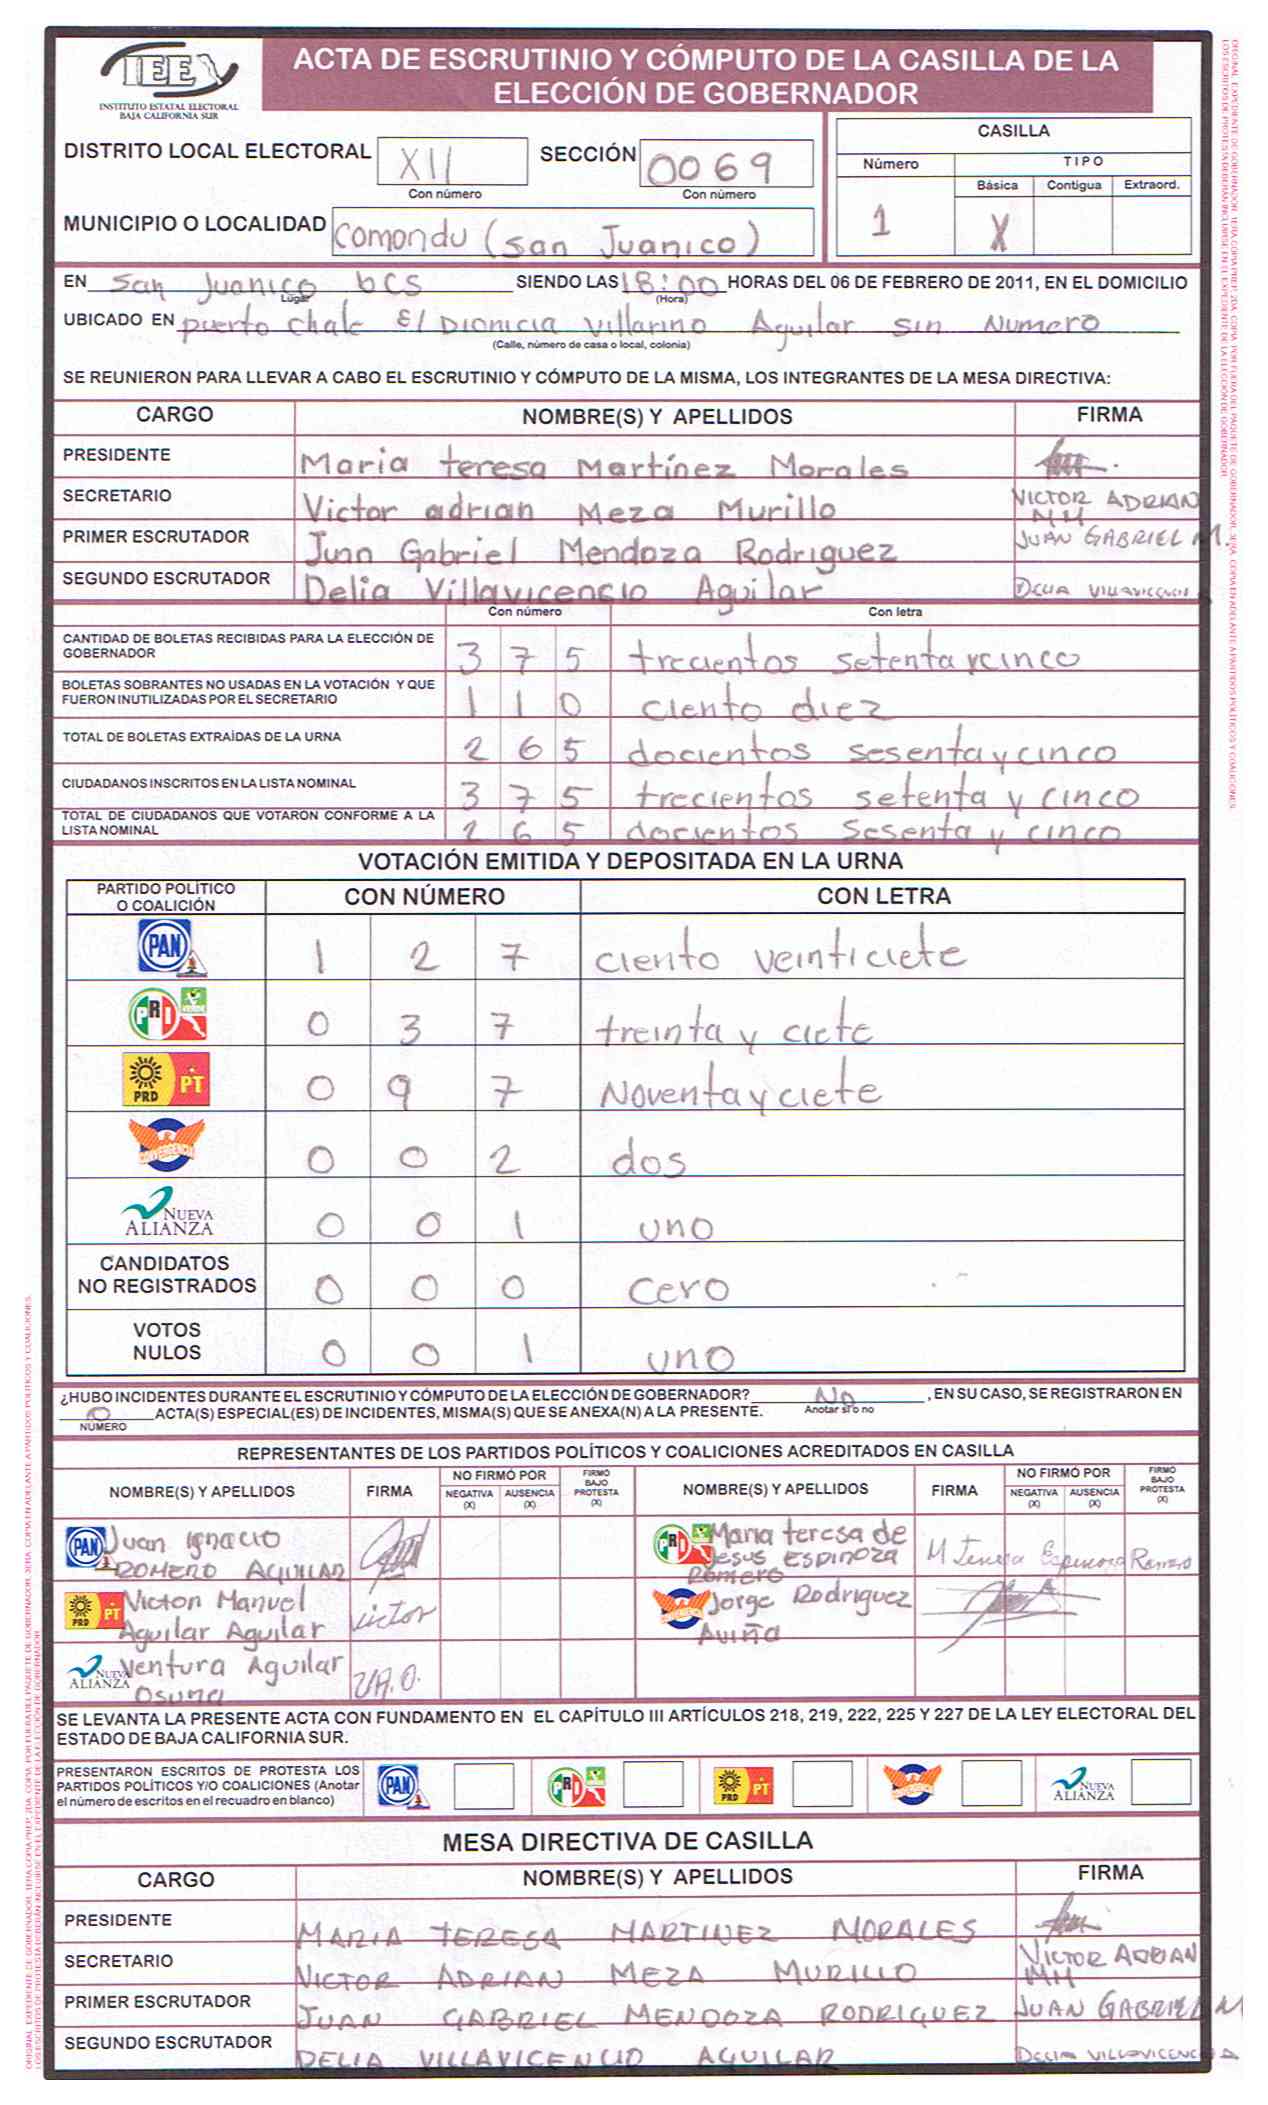 IEE
INSTITUTO ESTATAL ELECTORAL
BAJA CALIFORNIA SUR
ACTA DE ESCRUTINIO Y CÓMPUTO DE LA CASILLA DE LA
ELECCIÓN DE GOBERNADOR
DISTRITO LOCAL ELECTORAL XII SECCIÓN 0069
Con número Con número
MUNICIPIO O LOCALIDAD Comondu (San Juanico)
CASILLA
Número TIPO
Básica Contigua Extraord.
1 X
EN San Juanico bcs SIENDO LAS 18:00 HORAS DEL 06 DE FEBRERO DE 2011, EN EL DOMICILIO
Lugar (Hora)
UBICADO EN puerto chale E/ Dionicia Villarino Aguilar sin Numero
(Calle, número de casa o local, colonia)
SE REUNIERON PARA LLEVAR A CABO EL ESCRUTINIO Y CÓMPUTO DE LA MISMA, LOS INTEGRANTES DE LA MESA DIRECTIVA:
CARGO NOMBRE(S) Y APELLIDOS FIRMA
PRESIDENTE Maria teresa Martínez Morales
SECRETARIO Victor adrian Meza Murillo VICTOR ADRIAN MM
PRIMER ESCRUTADOR Juan Gabriel Mendoza Rodriguez JUAN GABRIEL M.
SEGUNDO ESCRUTADOR Delia Villavicencio Aguilar DELIA VILLAVICENCIO
Con número Con letra
CANTIDAD DE BOLETAS RECIBIDAS PARA LA ELECCIÓN DE
GOBERNADOR 3 7 5 trecientos setenta y cinco
BOLETAS SOBRANTES NO USADAS EN LA VOTACIÓN Y QUE
FUERON INUTILIZADAS POR EL SECRETARIO 1 1 0 ciento diez
TOTAL DE BOLETAS EXTRAÍDAS DE LA URNA 2 6 5 docientos sesenta y cinco
CIUDADANOS INSCRITOS EN LA LISTA NOMINAL 3 7 5 trecientos setenta y cinco
TOTAL DE CIUDADANOS QUE VOTARON CONFORME A LA
LISTA NOMINAL 2 6 5 docientos sesenta y cinco
VOTACIÓN EMITIDA Y DEPOSITADA EN LA URNA
PARTIDO POLÍTICO
O COALICIÓN CON NÚMERO CON LETRA
PAN 1 2 7 ciento veinticiete
PRI VERDE 0 3 7 treinta y ciete
PRD PT 0 9 7 Noventa y ciete
CONVERGENCIA 0 0 2 dos
NUEVA ALIANZA 0 0 1 uno
CANDIDATOS
NO REGISTRADOS 0 0 0 cero
VOTOS
NULOS 0 0 1 uno
¿HUBO INCIDENTES DURANTE EL ESCRUTINIO Y CÓMPUTO DE LA ELECCIÓN DE GOBERNADOR? No, EN SU CASO, SE REGISTRARON EN
Anotar sí o no
0 ACTA(S) ESPECIAL(ES) DE INCIDENTES, MISMA(S) QUE SE ANEXA(N) A LA PRESENTE.
NÚMERO
REPRESENTANTES DE LOS PARTIDOS POLÍTICOS Y COALICIONES ACREDITADOS EN CASILLA
NOMBRE(S) Y APELLIDOS FIRMA NO FIRMÓ POR NEGATIVA (X) AUSENCIA (X) FIRMÓ BAJO PROTESTA (X) NOMBRE(S) Y APELLIDOS FIRMA NO FIRMÓ POR NEGATIVA (X) AUSENCIA (X) FIRMÓ BAJO PROTESTA (X)
PAN Juan Ignacio
ROMERO AGUILAR
PRI Maria teresa de
Jesus ESPINOZA
Romero M Teresa Espinoza Romero
PRD PT Victor Manuel
Aguilar Aguilar victor
CONVERGENCIA Jorge Rodriguez
Aviña
NUEVA ALIANZA Ventura Aguilar
Osuna V.A.O.
SE LEVANTA LA PRESENTE ACTA CON FUNDAMENTO EN EL CAPÍTULO III ARTÍCULOS 218, 219, 222, 225 Y 227 DE LA LEY ELECTORAL DEL
ESTADO DE BAJA CALIFORNIA SUR.
PRESENTARON ESCRITOS DE PROTESTA LOS
PARTIDOS POLÍTICOS Y/O COALICIONES (Anotar
el número de escritos en el recuadro en blanco)
PAN PRI PRD PT CONVERGENCIA NUEVA ALIANZA
MESA DIRECTIVA DE CASILLA
CARGO NOMBRE(S) Y APELLIDOS FIRMA
PRESIDENTE MARIA TERESA MARTINEZ MORALES
SECRETARIO VICTOR ADRIAN MEZA MURILLO VICTOR ADRIAN MM
PRIMER ESCRUTADOR JUAN GABRIEL MENDOZA RODRIGUEZ JUAN GABRIEL M
SEGUNDO ESCRUTADOR DELIA VILLAVICENCIO AGUILAR DELIA VILLAVICENCIO A